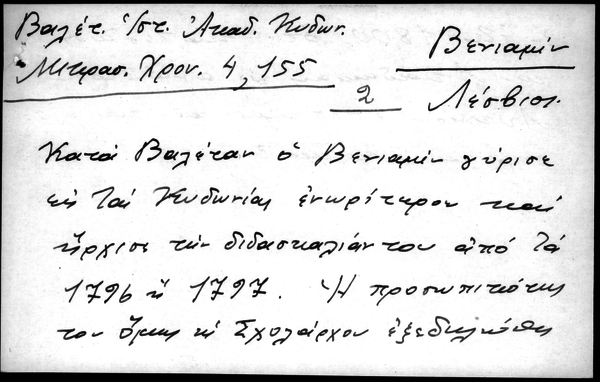 Βαλέτ. Ἱστ. Ἀκαδ. Κυδων.
Μικρασ. Χρον. 4, 155
Βενιαμίν
2
Λέσβιος.
Κατά Βαλέταν ὁ Βενιαμίν γύρισε
εἰς τάς Κυδωνίας ἐνωρίτερον καί
ἤρχισε τήν διδασκαλίαν του ἀπό τά
1796 ἤ 1797. Ἡ προσωπικότης
του ὅμως ὡς Σχολάρχου ἐξεδηλώθη